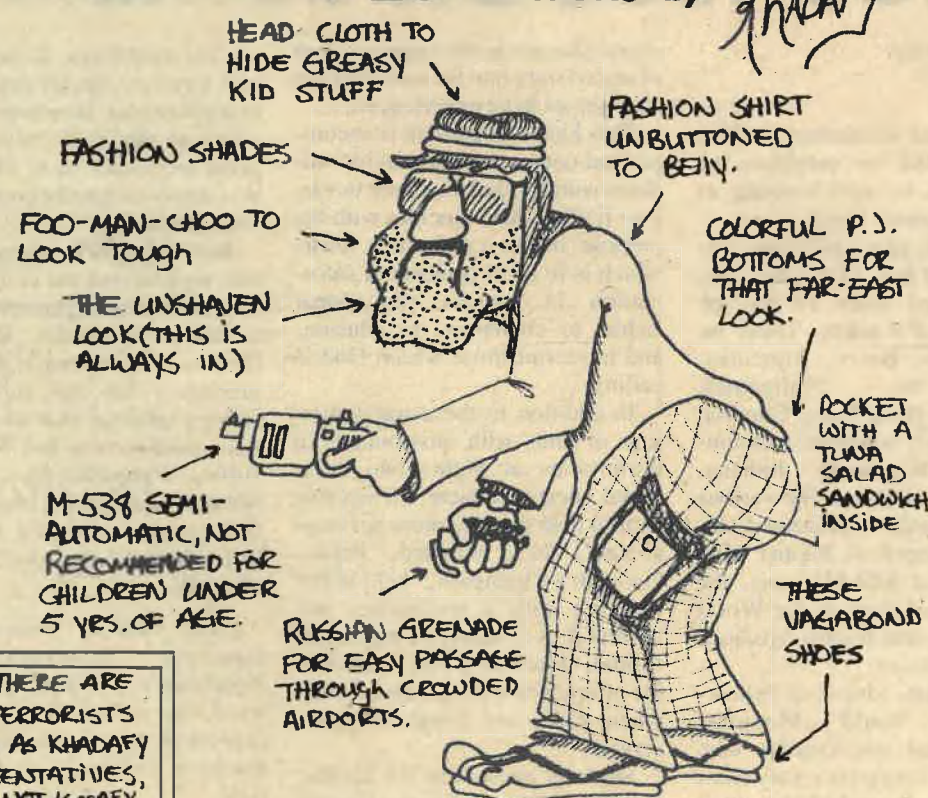 KADAFY
HEAD CLOTH TO
HIDE GREASY
KID STUFF
FASHION SHADES
FOO-MAN-CHOO TO
LOOK TOUGH
THE UNSHAVEN
LOOK (THIS IS
ALWAYS IN)
M-538 SEMI-
AUTOMATIC, NOT
RECOMMENDED FOR
CHILDREN UNDER
5 YRS. OF AGE.
FASHION SHIRT
UNBUTTONED
TO BELLY.
COLORFUL P.J.
BOTTOMS FOR
THAT FAR-EAST
LOOK.
POCKET
WITH A
TUNA
SALAD
SANDWICH
INSIDE
THESE
VAGABOND
SHOES
RUSSIAN GRENADE
FOR EASY PASSAGE
THROUGH CROWDED
AIRPORTS.
THERE ARE
TERRORISTS
AS KHADAFY